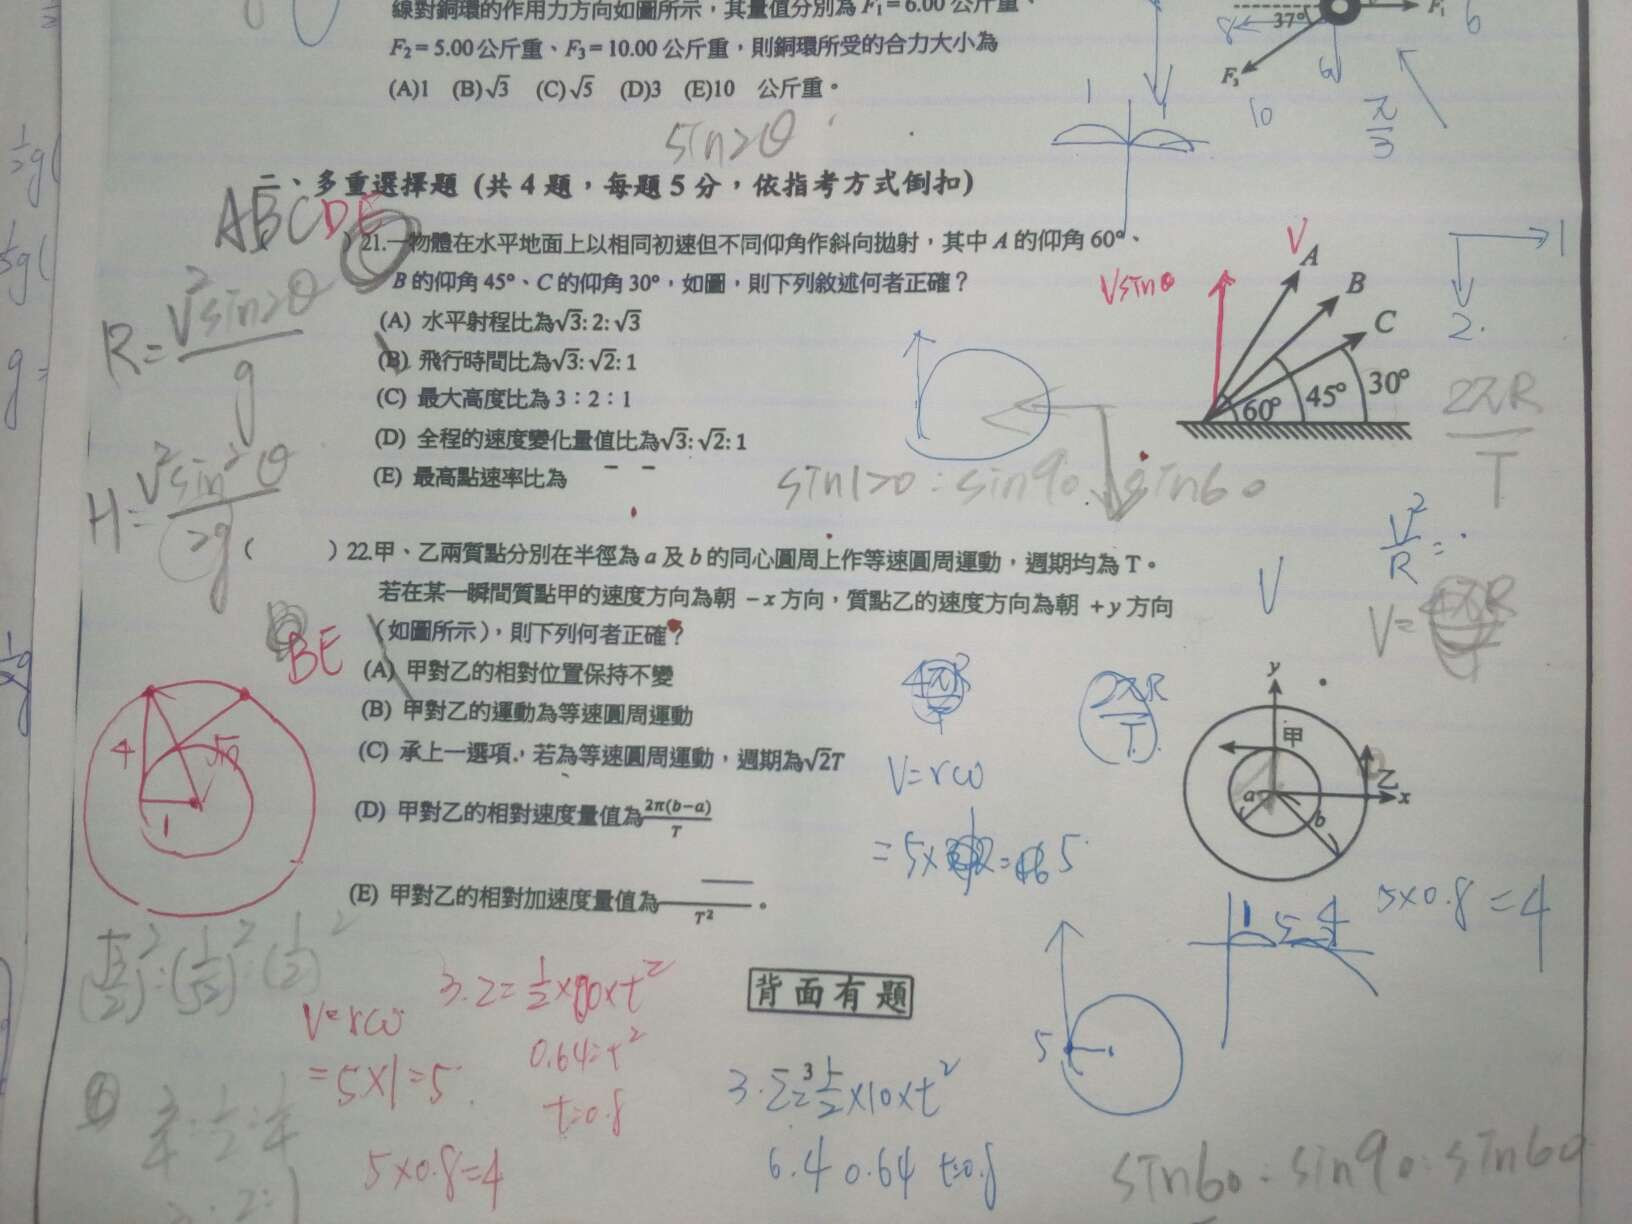 線對銅環的作用力方向如圖所示，其量值分別為 F₁=6.00 公斤重、
F₂=5.00公斤重、F₃=10.00 公斤重，則銅環所受的合力大小為
(A)1 (B)√3 (C)√5 (D)3 (E)10 公斤重。
37°
F₁
F₃
8
6
6
10
π/3
1
1
sin2θ
二、多重選擇題 (共 4 題，每題 5 分，依指考方式倒扣)
ABCDE
)21.一物體在水平地面上以相同初速但不同仰角作斜向拋射，其中 A 的仰角 60°、
B 的仰角 45°、C 的仰角 30°，如圖，則下列敘述何者正確？
(A) 水平射程比為√3: 2: √3
(B) 飛行時間比為√3: √2: 1
(C) 最大高度比為 3：2：1
(D) 全程的速度變化量值比為√3: √2: 1
(E) 最高點速率比為
R=V²sin2θ/g
H=V²sin²θ/2g
V
Vsinθ
A
B
C
60°
45°
30°
1
2
2πR/T
sin120:sin90:sin60
V²/R=
V
V=
( )22.甲、乙兩質點分別在半徑為 a 及 b 的同心圓周上作等速圓周運動，週期均為 T。
若在某一瞬間質點甲的速度方向為朝 −x 方向，質點乙的速度方向為朝 +y 方向
(如圖所示)，則下列何者正確？
BE
(A) 甲對乙的相對位置保持不變
(B) 甲對乙的運動為等速圓周運動
(C) 承上一選項，若為等速圓周運動，週期為√2T
(D) 甲對乙的相對速度量值為 2π(b−a)/T
(E) 甲對乙的相對加速度量值為 /T² 。
4
√17
1
2πR/T
V=rω
y
甲
乙
x
a
b
5×0.8=4
背面有題
V=rω
=5×1=5
5×0.8=4
0.64=t²
t=0.8
5
6.4 0.64 t=0.8
sin60:sin90:sin60